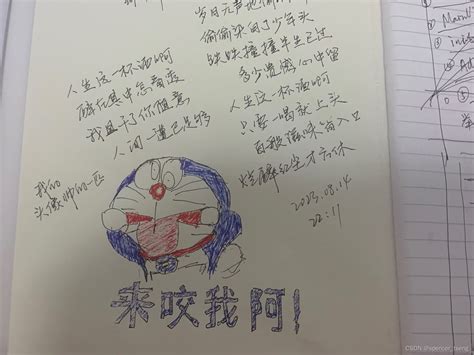 人生这一杯酒啊
醉在其中怎看透
我且干了你随意
人间一遭已足够
我的
头像帅的一匹
岁月无声地
偷偷染白了少年头
跌跌撞撞半生已过
多少遗憾心中留
人生这一杯酒啊
只要一喝就上头
百般滋味皆入口
烂醉红尘才方休
2023.08.14
22:11
来咬我阿!
CSDN @spencer_tseng